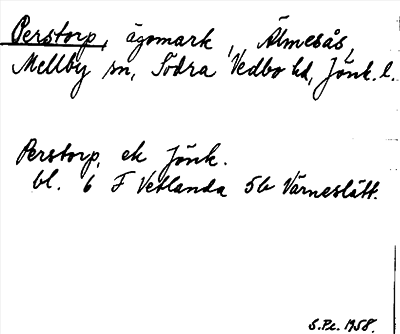 Perstorp, ägomark, Älmesås,
Mellby sn, Södra Vedbo hd, Jönk. l.
Perstorp, ek Jönk.
bl. 6 F Vetlanda 5b Värneslätt.
S.Pc. 1958.